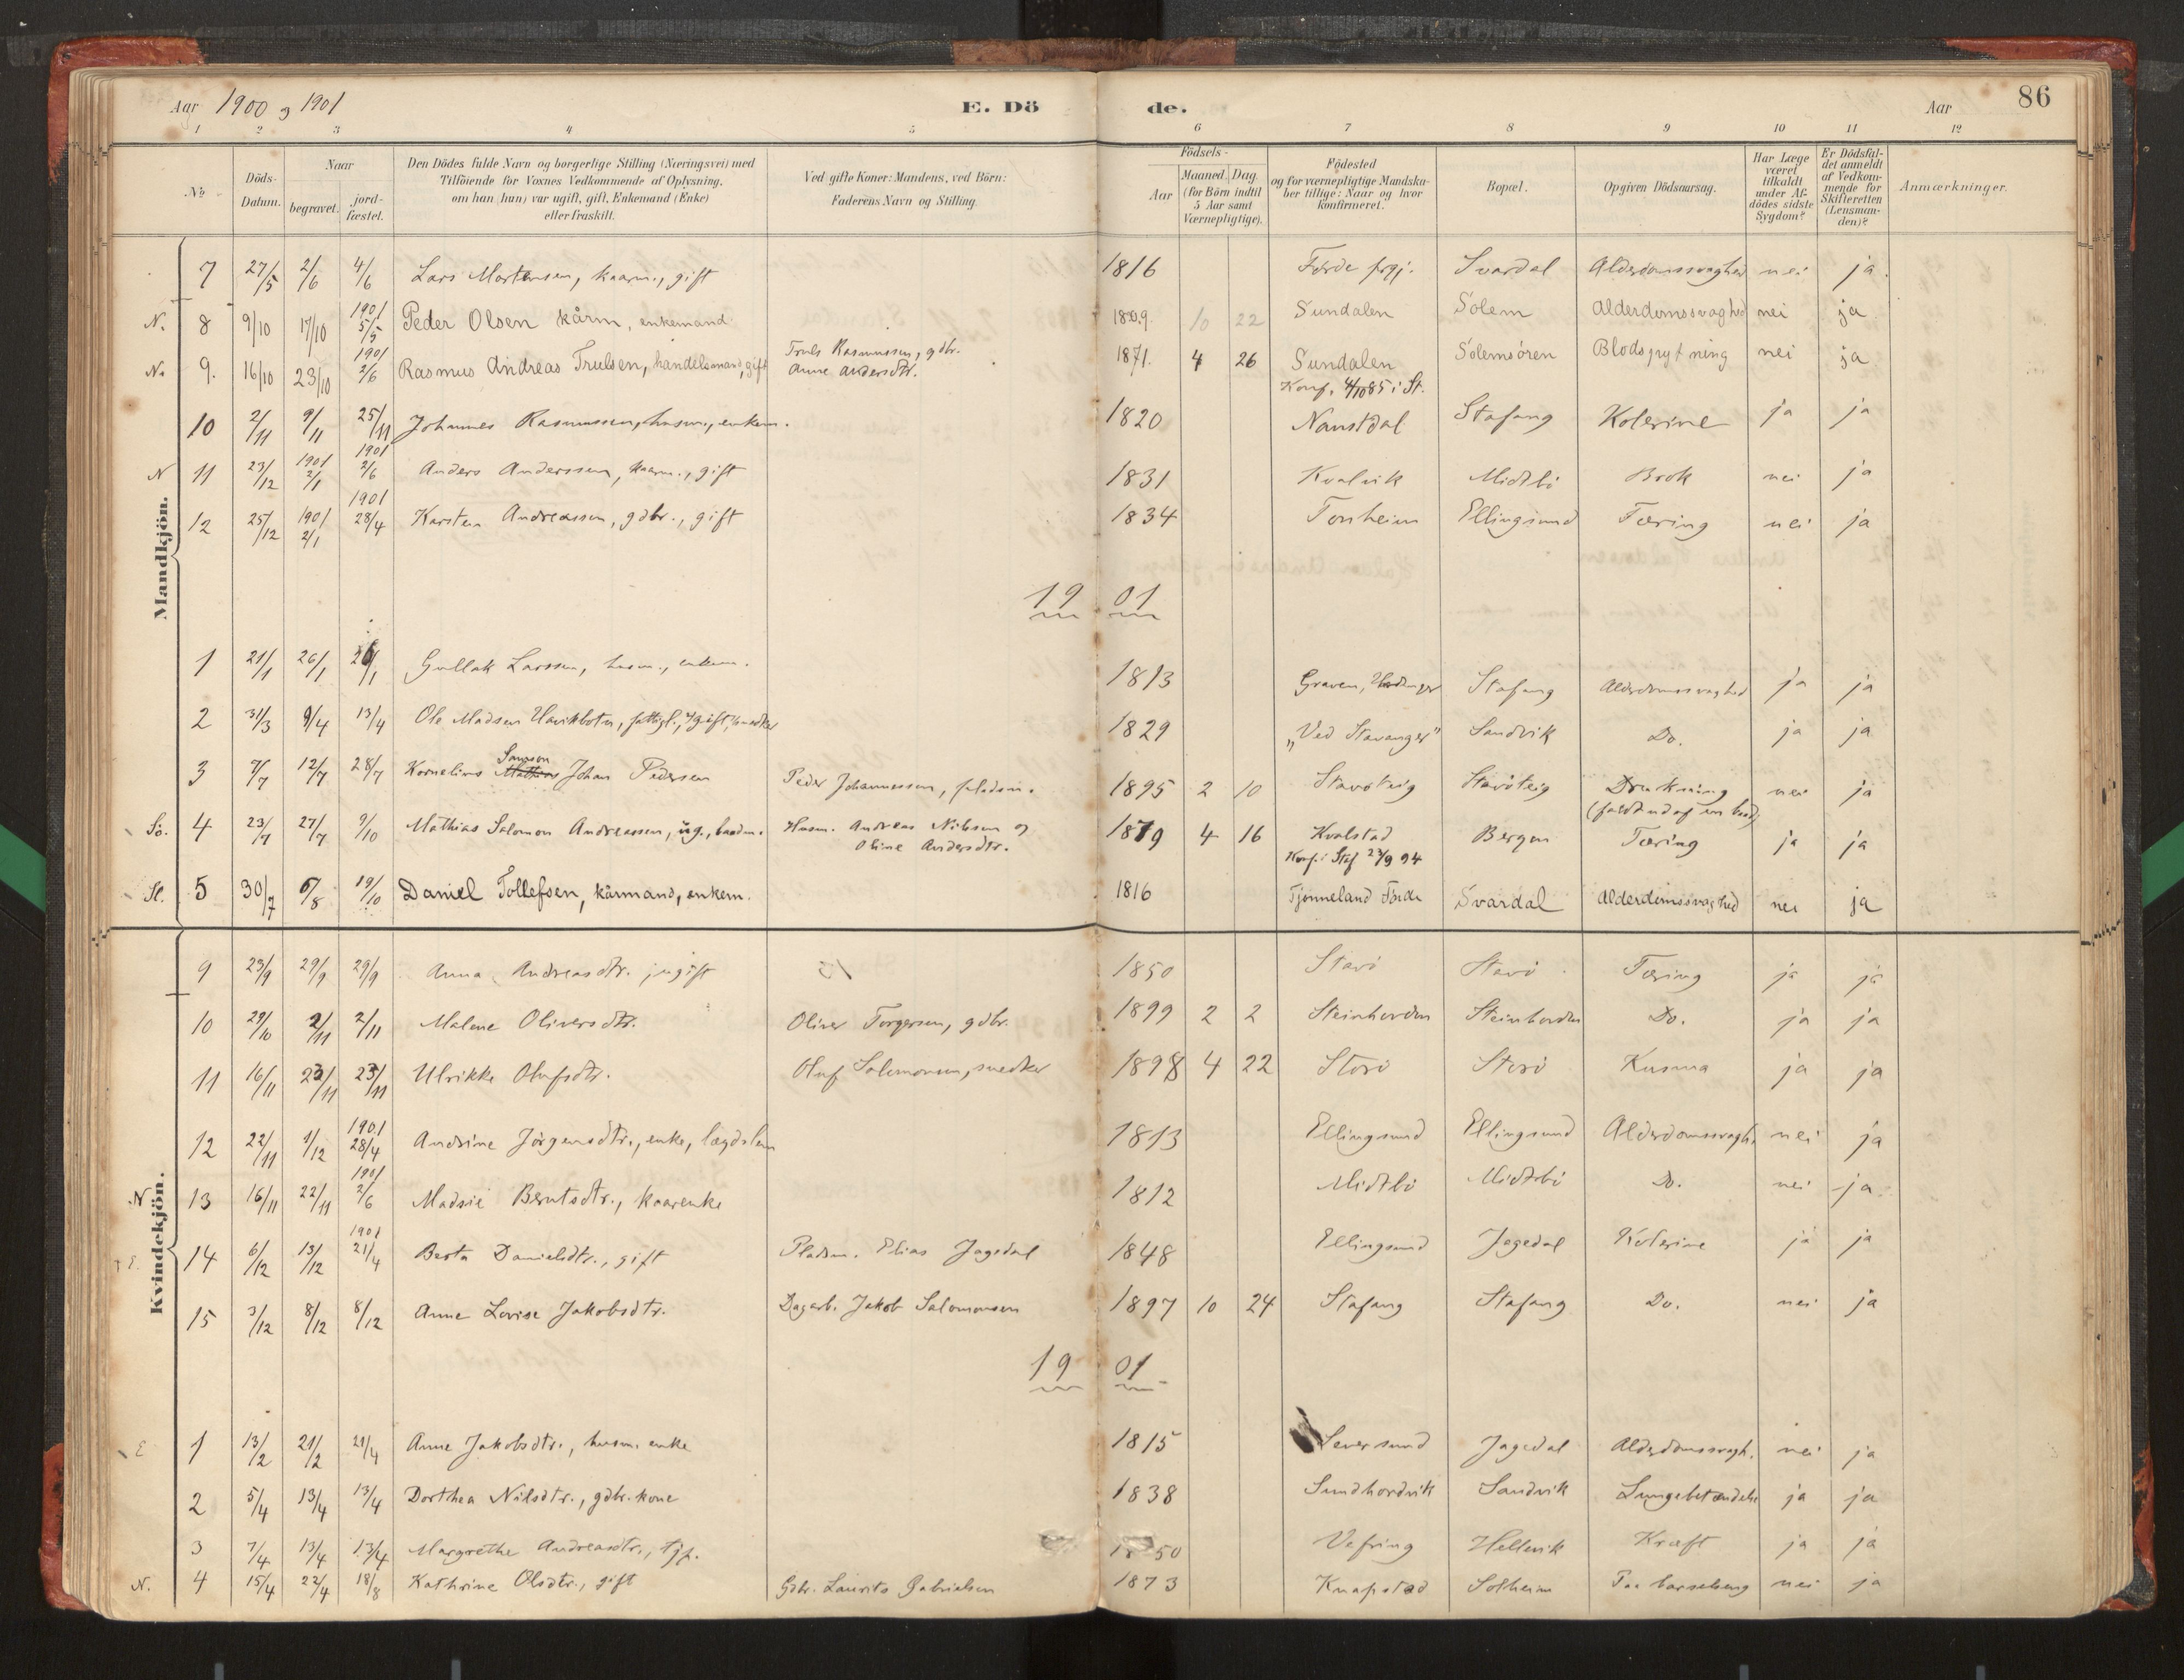 Aar 1900 og 1901 E. Dö de. Aar 86
1 2 3 4 5 6 7 8 9 10 11 12
No
Döds-Datum.
Naar
begravet.
jord-fæstet.
Den Dödes fulde Navn og borgerlige Stilling (Næringsvei) med
Tilföiende for Voxnes Vedkommende af Oplysning,
om han (hun) var ugift, gift, Enkemand (Enke)
eller fraskilt.
Ved gifte Koner: Mandens, ved Börn:
Faderens Navn og Stilling.
Födsels-
Aar
Maaned. Dag.
(for Börn indtil
5 Aar samt
Værnepligtige).
Födested
og for værnepligtige Mandska-
ber tillige: Naar og hvor
konfirmeret.
Bopæl.
Opgiven Dödsaarsag.
Har Læge
været
tilkaldt
under Af-
dödes sidste
Sygdom?
Er Dödsfal-
det anmeldt
af Vedkom-
mende for
Skifteretten
(Lensman-
den)?
Anmærkninger.
Mandkjön.
7 27/5 2/6 4/6 Lars Mortensen, kaarm., gift 1816 Förde prgj. Svardal Alderdomssvaghed nei ja.
N. 8 9/10 17/10 1901 5/5 Peder Olsen kårm, enkemand 10 22 Sundalen Solem Alderdomssvaghed nei ja
N. 9. 16/10 23/10 1901 2/6 Rasmus Andreas Trulsen, handelsmand, gift Truls Rasmussen, gdbr. 1871. 4 26 Sundalen Solemsören Blodspytning nei ja
Anne Andersdtr. Konf. 4/10 85 i St.
10 2/11 9/11 25/11 Johannes Rasmussen, husm., enkem. 1820 Naustdal Stafang Kolerine ja ja
N 11 23/12 1901 2/1 1901 2/6 Anders Anderssen, kaarm., gift 1831 Kvalvik Midtbö Brok nei ja
12 25/12 1901 2/1 1901 28/4 Karsten Andreassen, gdbr., gift 1834 Tonheim Ellingsund Tæring nei ja
19 01
1 21/1 26/1 26/1 Gullak Larssen, husm., enkem. 1813 Graven, Hardanger Stafang Alderdomssvaghed ja ja
2 31/3 9/4 13/4 Ole Madsen Havikbotn, fattigl., gift, snedker 1829 "Ved Stavanger" Sandvik Do. ja ja
3 7/7 12/7 28/7 Kornelius Mathias Samson Johan Pedersen Peder Johannessen, pladsm. 1895 2 10 Stavöteig Stavöteig Drukning nei ja
(faldt ud af en baad)
Sö. 4 23/7 27/7 9/10 Mathias Salomon Andreassen, ug., Husm. Andreas Nilssen og 1879 4 16 Kvalstad Bergen Tæring ja ja
Oline Andersdtr. Konf. i Staf 23/9 94
St. 5 30/7 6/8 19/10 Daniel Tollefsen, kårmand, enkem. 1816 Tjönneland Förde Svardal Alderdomssvaghed nei ja
Kvindekjön.
9 23/9 29/9 29/9 Anna Andreasdtr. ugift 1850 Stavö Stavö Tæring ja ja
10 29/10 2/11 2/11 Malene Oliversdtr. Oliver Torgersen, gdbr. 1899 2 2 Steinhovden Steinhovden Do. ja ja
11 16/11 23/11 23/11 Ulrikke Olufsdtr. Oluf Salomonsen, snedker 1898 4 22 Storö Storö Kusma ja ja
12 22/11 1/12 1901 28/4 Andrine Jörgensdtr., enke, lægdslem 1813 Ellingsund Ellingsund Alderdomssvagh. nei ja
N 13 16/11 22/11 1901 2/6 Madsie Berntsdtr., kaarenke 1812 Midtbö Midtbö Do. nei ja.
E. 14 6/12 13/12 1901 21/4 Berta Danielsdtr., gift Pladsm. Elias Jagedal 1848 Ellingsund Jagedal Kolerine ja ja
15 3/12 8/12 8/12 Anne Lovise Jakobsdtr. Dagarb. Jakob Salomonsen 1897 10 24 Stafang Stafang Do. nei ja
19 01
E 1 13/2 21/2 21/4 Anne Jakobsdtr., husm. enke 1815 Leversund Jagedal Alderdomssvagh. nei ja
2 5/4 13/4 13/4 Dorthea Nilsdtr., gdbr. kone 1838 Sundhordvik Sandvik Lungebetændelse ja ja
3 7/4 13/4 13/4 Margrethe Andreasdtr., tjp. 1850 Vefring Hellevik Kræft ja ja
N. 4 15/4 22/4 18/8 Kathrine Olsdtr., gift Gdbr. Laurits Gabrielsen 1873 Knapstad Solheim Paa barselseng nei ja